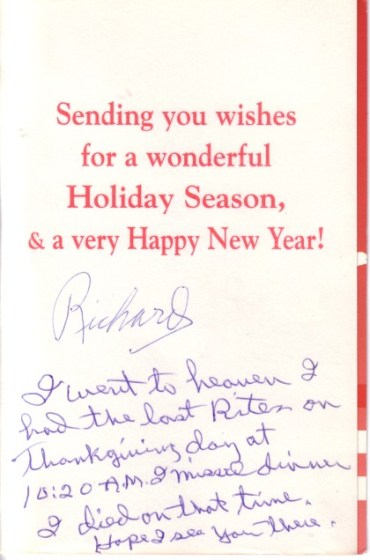 Sending you wishes
for a wonderful
Holiday Season,
& a very Happy New Year!
Richard
I went to heaven I
had the last Rites on
Thanksgiving day at
10:20 A.M. I missed dinner
I died on that time.
Hope I see you there.